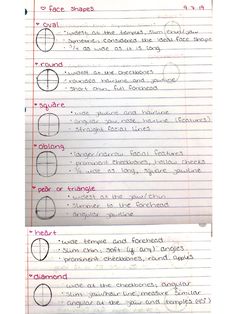 ♥ face shapes 9.7.19
♥ oval
• widest at the temples, slim chin/jaw
• symmetric, considered the ideal face shape
• 1/2 as wide as it is long
♥ round
• widest at the cheekbones
• rounded hairline and jawline
• short chin, full forehead
♥ square
• wide jawline and hairline
• angular jaw, nose, hairline (features)
• straight facial lines
♥ oblong
• longer/narrow facial features
• prominent cheekbones, hollow cheeks
• 1/2 wide as long, square jawline
♥ pear or triangle
• widest at the jaw/chin
• slimmer to the forehead
• angular jawline
♥ heart
• wide temple and forehead
• slim chin, soft angles
• prominent cheekbones, round, apples
♥ diamond
• wide at the cheekbones, angular
• slim jaw/hairline, measure similar
• angular at the jaw and temples